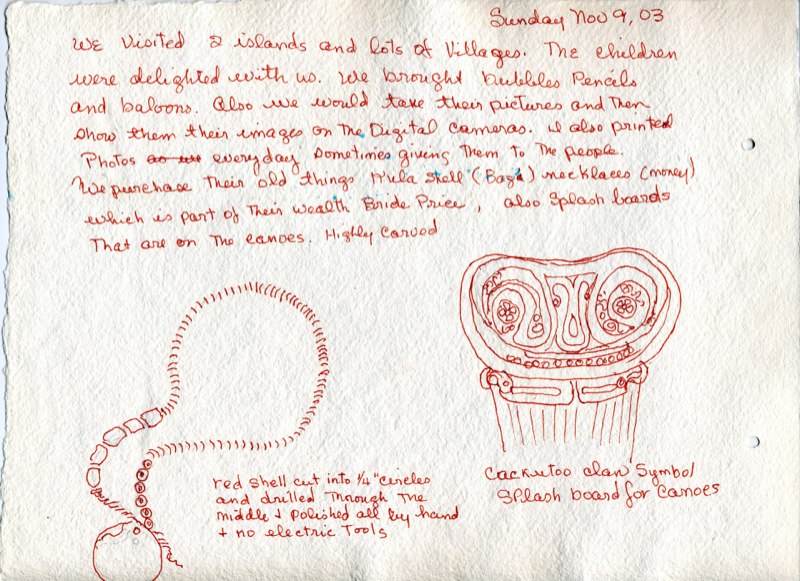 Sunday Nov 9, 03
We Visited 2 islands and lots of Villages. The children
were delighted with us. We brought bubbles Pencils
and baloons. Also we would take their pictures and Then
show them their images on The Digital cameras. I also printed
Photos everyday Sometimes giving Them to The people.
We purchase Their old things Hula shell (Bagi) necklaces (money)
which is part of Their wealth Bride Price, also Splash boards
That are on The canoes. Highly Carved
red shell cut into 1/4" circles
and drilled Through The
middle + polished all by hand
+ no electric Tools
Cackutoo clan Symbol
Splash board for Canoes